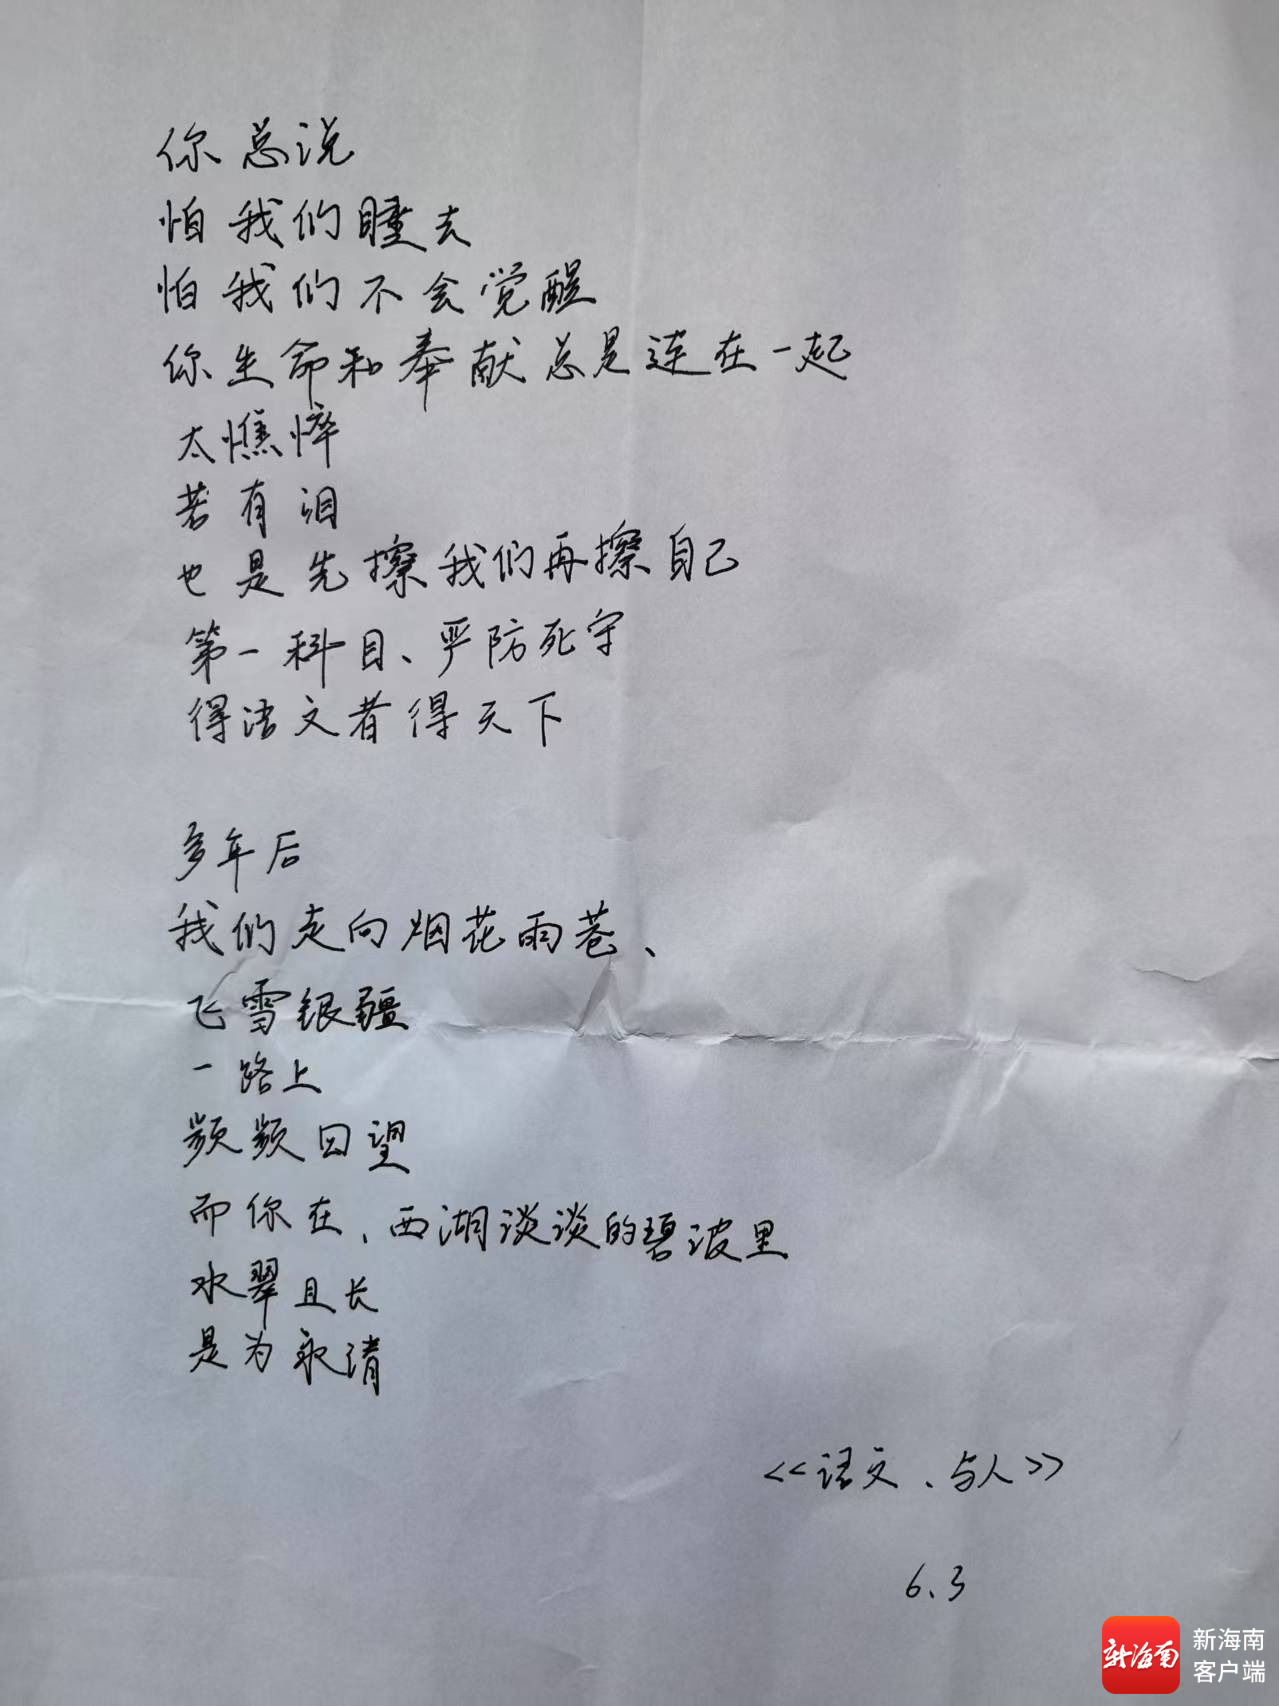 你总说
怕我们睡去
怕我们不会觉醒
你生命和奉献总是连在一起
太憔悴
若有泪
也是先擦我们再擦自己
第一科目、严防死守
得语文者得天下
多年后
我们走向烟花雨巷、
飞雪银疆
一路上
频频回望
而你在、西湖谈谈的碧波里
水翠且长
是为永清
<<语文、与人>>
6.3
新海南
新海南
客户端